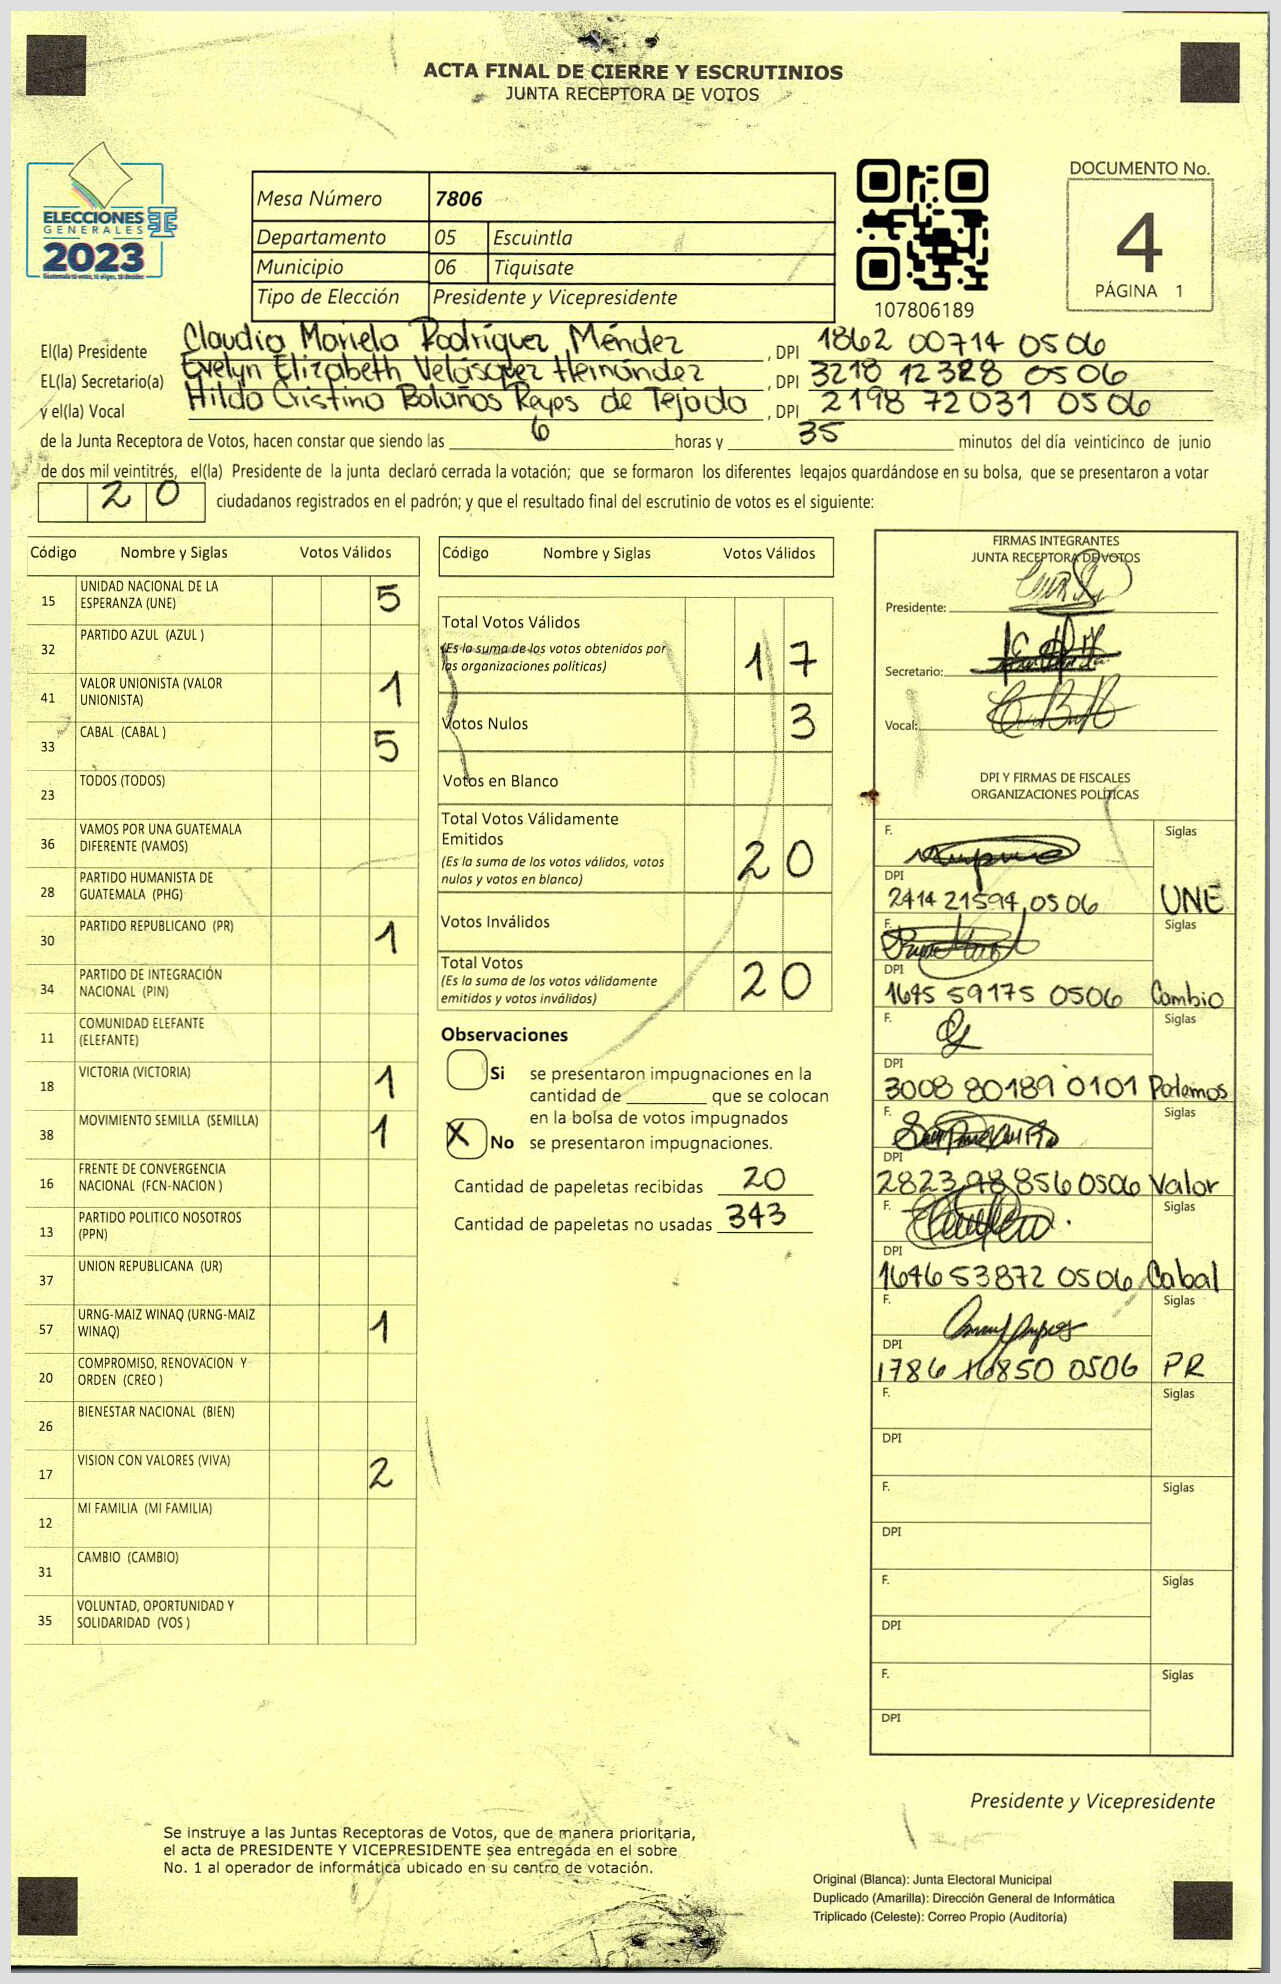 ACTA FINAL DE CIERRE Y ESCRUTINIOS
JUNTA RECEPTORA DE VOTOS
ELECCIONES
GENERALES
2023
Mesa Número 7806
Departamento 05 Escuintla
Municipio 06 Tiquisate
Tipo de Elección Presidente y Vicepresidente
107806189
DOCUMENTO No.
4
PÁGINA 1
El(la) Presidente Claudia Mariela Rodríguez Méndez , DPI 1862 00714 0506
EL(la) Secretario(a) Evelyn Elizabeth Velásquez Hernández , DPI 3218 12328 0506
y el(la) Vocal Hilda Cristina Bolaños Reyes de Tejada , DPI 2198 72031 0506
de la Junta Receptora de Votos, hacen constar que siendo las 6 horas y 35 minutos del día veinticinco de junio
de dos mil veintitrés, el(la) Presidente de la junta declaró cerrada la votación; que se formaron los diferentes legajos guardándose en su bolsa, que se presentaron a votar
20 ciudadanos registrados en el padrón; y que el resultado final del escrutinio de votos es el siguiente:
Código Nombre y Siglas Votos Válidos
15 UNIDAD NACIONAL DE LA ESPERANZA (UNE) 5
32 PARTIDO AZUL (AZUL )
41 VALOR UNIONISTA (VALOR UNIONISTA) 1
33 CABAL (CABAL ) 5
23 TODOS (TODOS)
36 VAMOS POR UNA GUATEMALA DIFERENTE (VAMOS)
28 PARTIDO HUMANISTA DE GUATEMALA (PHG)
30 PARTIDO REPUBLICANO (PR) 1
34 PARTIDO DE INTEGRACIÓN NACIONAL (PIN)
11 COMUNIDAD ELEFANTE (ELEFANTE)
18 VICTORIA (VICTORIA) 1
38 MOVIMIENTO SEMILLA (SEMILLA) 1
16 FRENTE DE CONVERGENCIA NACIONAL (FCN-NACION )
13 PARTIDO POLITICO NOSOTROS (PPN)
37 UNION REPUBLICANA (UR)
57 URNG-MAIZ WINAQ (URNG-MAIZ WINAQ) 1
20 COMPROMISO, RENOVACION Y ORDEN (CREO )
26 BIENESTAR NACIONAL (BIEN)
17 VISION CON VALORES (VIVA) 2
12 MI FAMILIA (MI FAMILIA)
31 CAMBIO (CAMBIO)
35 VOLUNTAD, OPORTUNIDAD Y SOLIDARIDAD (VOS )
Código Nombre y Siglas Votos Válidos
Total Votos Válidos 17
(Es la suma de los votos obtenidos por
las organizaciones políticas)
Votos Nulos 3
Votos en Blanco
Total Votos Válidamente
Emitidos 20
(Es la suma de los votos válidos, votos
nulos y votos en blanco)
Votos Inválidos
Total Votos 20
(Es la suma de los votos válidamente
emitidos y votos inválidos)
Observaciones
Si se presentaron impugnaciones en la
cantidad de ________ que se colocan
en la bolsa de votos impugnados
X No se presentaron impugnaciones.
Cantidad de papeletas recibidas 20
Cantidad de papeletas no usadas 343
FIRMAS INTEGRANTES
JUNTA RECEPTORA DE VOTOS
Presidente:
Secretario:
Vocal:
DPI Y FIRMAS DE FISCALES
ORGANIZACIONES POLÍTICAS
F. Siglas
DPI
2414 21594 0506 UNE
F. Siglas
DPI
1645 59175 0506 Cambio
F. Siglas
DPI
3008 80189 0101 Podemos
F. Siglas
DPI
2823 98856 0506 Valor
F. Siglas
DPI
1646 53872 0506 Cabal
F. Siglas
DPI
1786 16850 0506 PR
F. Siglas
DPI
F. Siglas
DPI
F. Siglas
DPI
F. Siglas
DPI
Presidente y Vicepresidente
Se instruye a las Juntas Receptoras de Votos, que de manera prioritaria,
el acta de PRESIDENTE Y VICEPRESIDENTE sea entregada en el sobre
No. 1 al operador de informática ubicado en su centro de votación.
Original (Blanca): Junta Electoral Municipal
Duplicado (Amarilla): Dirección General de Informática
Triplicado (Celeste): Correo Propio (Auditoría)